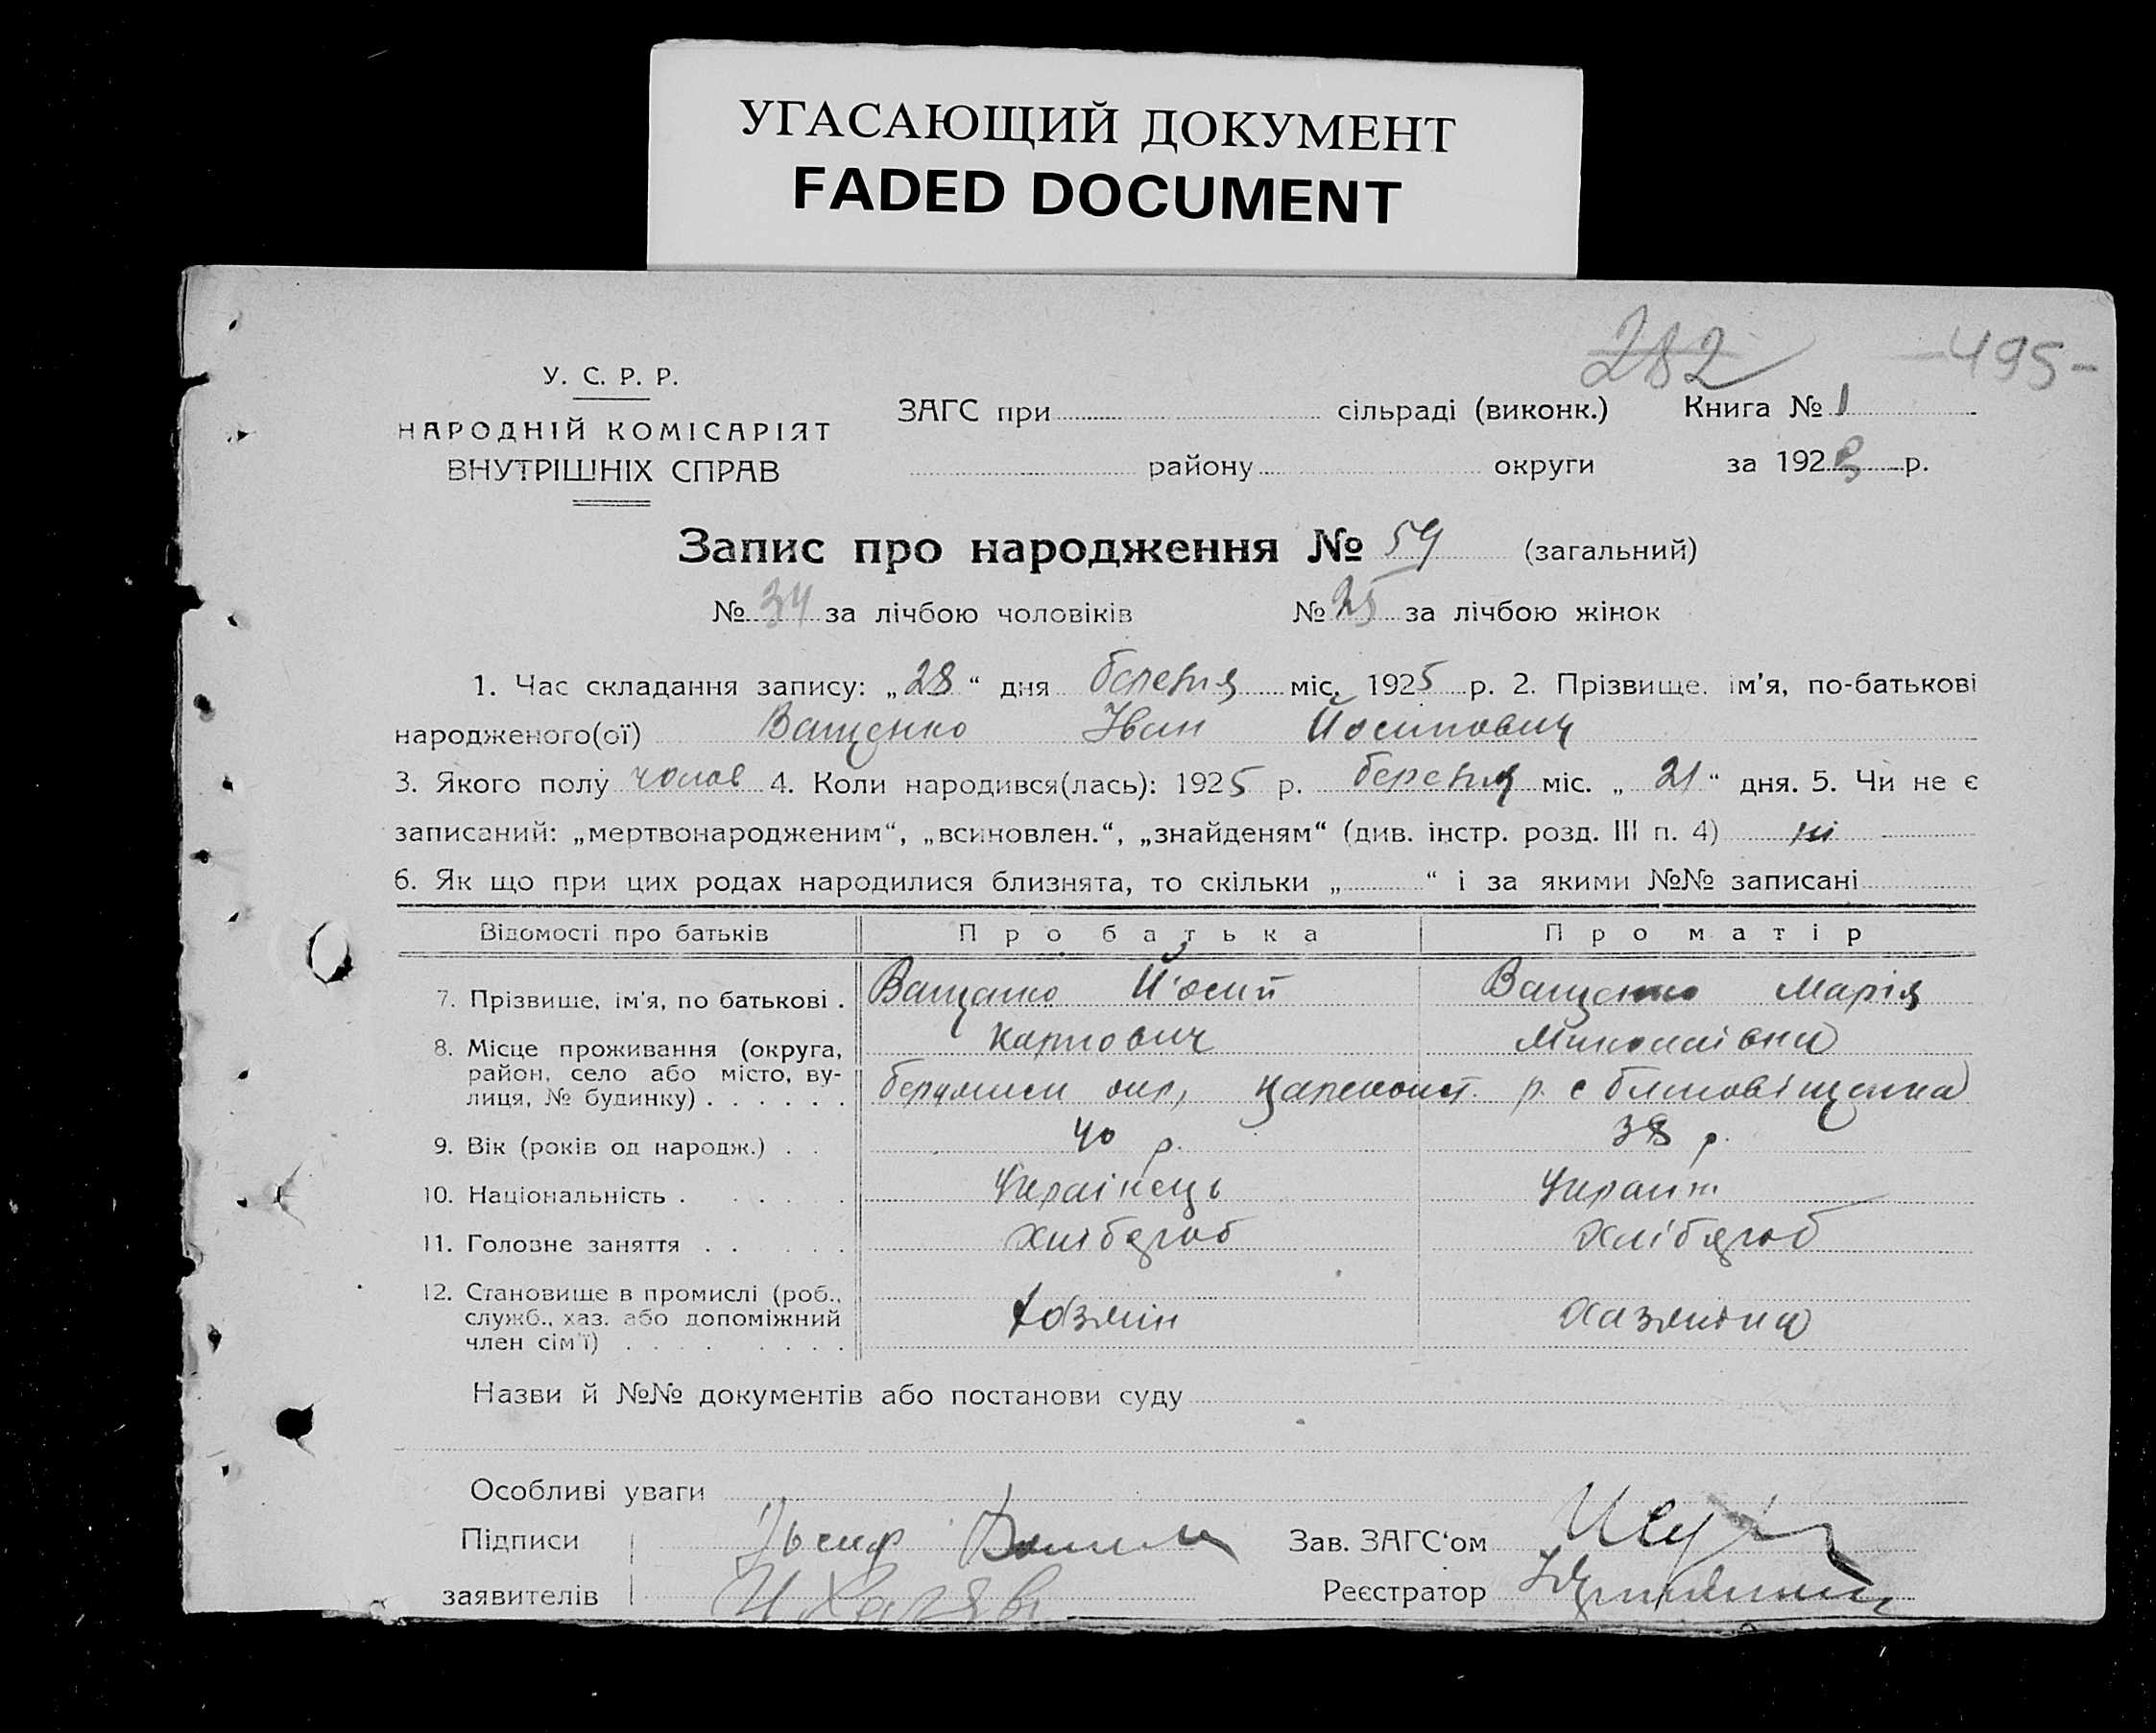 УГАСАЮЩИЙ ДОКУМЕНТ
FADED DOCUMENT
282 -495-
У. С. Р. Р.
НАРОДНІЙ КОМІСАРІЯТ
ВНУТРІШНІХ СПРАВ
ЗАГС при сільраді (виконк.) Книга № 1
району округи за 192 р.
Запис про народження № 59 (загальний)
№ 34 за лічбою чоловіків № 25 за лічбою жінок
1. Час складання запису: „28“ дня березня міс. 1925 р. 2. Прізвище, ім'я, по-батькові
народженого(ої) Ващенко Іван Йосипович
3. Якого полу чолов 4. Коли народився(лась): 1925 р. березня міс. „21“ дня. 5. Чи не є
записаний: „мертвонародженим“, „всиновлен.“, „знайденям“ (див. інстр. розд. III п. 4) ні
6. Як що при цих родах народилися близнята, то скільки „ “ і за якими №№ записані
Відомості про батьків Про батька Про матір
7. Прізвище, ім'я, по батькові . Ващенко Йосип Ващенко Марія
Карпович Миколаівна
8. Місце проживання (округа,
район, село або місто, ву-
лиця, № будинку) . . . . . . р. с
9. Вік (років од народж.) . . 40 р. 38 р.
10. Національність . . . . . Українець Украін
11. Головне заняття . . . . . Хлібороб Хлібороб
12. Становище в промислі (роб.,
служб., хаз. або допоміжний
член сім'ї) . . . . . . . . Хозяїн Хазяіна
Назви й №№ документів або постанови суду
Особливі уваги
Підписи Зав. ЗАГС'ом
заявителів Реєстратор